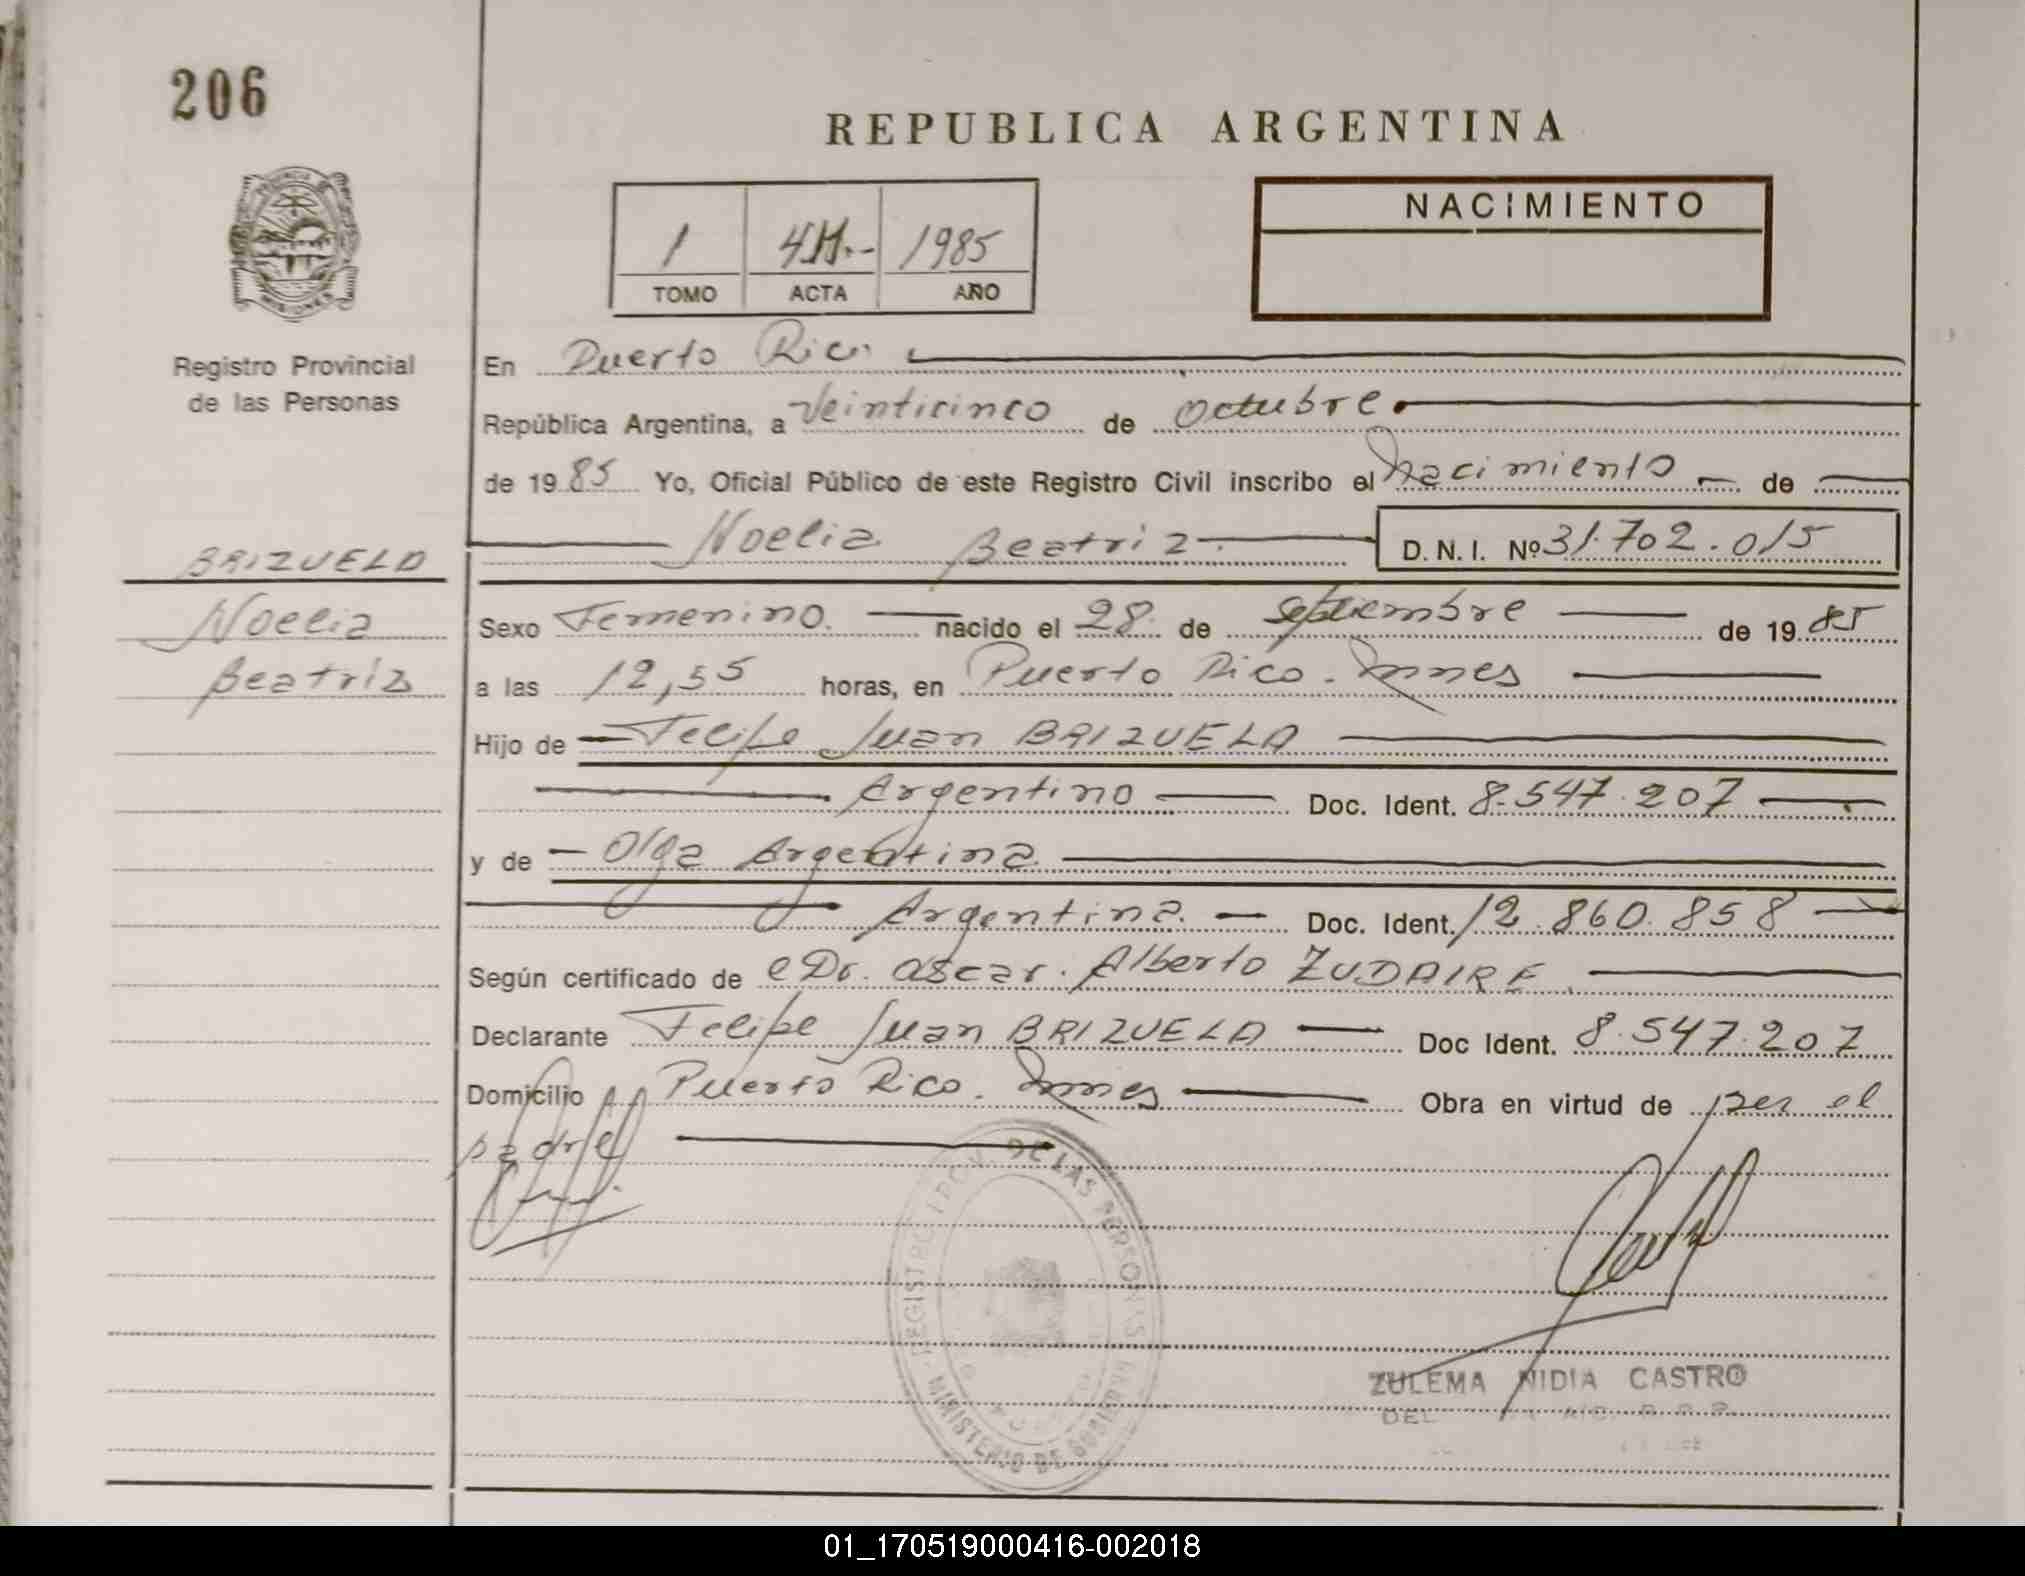 206
REPUBLICA ARGENTINA
PROVINCIA DE
MISIONES
1 1985
TOMO ACTA AÑO
NACIMIENTO
Registro Provincial
de las Personas
En Puerto Rico
República Argentina, a Veinticinco de octubre
de 1985 Yo, Oficial Público de este Registro Civil inscribo el nacimiento de
Noelia Beatriz D.N.I. Nº 31.702.015
BRIZUELA
Noelia
Beatriz
Sexo Femenino. nacido el 28. de septiembre de 1985
a las 12,55 horas, en Puerto Rico. Mnes
Hijo de Felipe Juan BRIZUELA
Argentino Doc. Ident. 8.547.207
y de Olga Argentina
Argentina. Doc. Ident. 12.860.858
Según certificado de Dr. Oscar Alberto ZUDAIRE
Declarante Felipe Juan BRIZUELA Doc Ident. 8.547.207
Domicilio Puerto Rico. Mnes Obra en virtud de ser el
padre
REGISTRO PROV. DE LAS PERSONAS
MINISTERIO DE GOBIERNO
ZULEMA NIDIA CASTRO
01_170519000416-002018